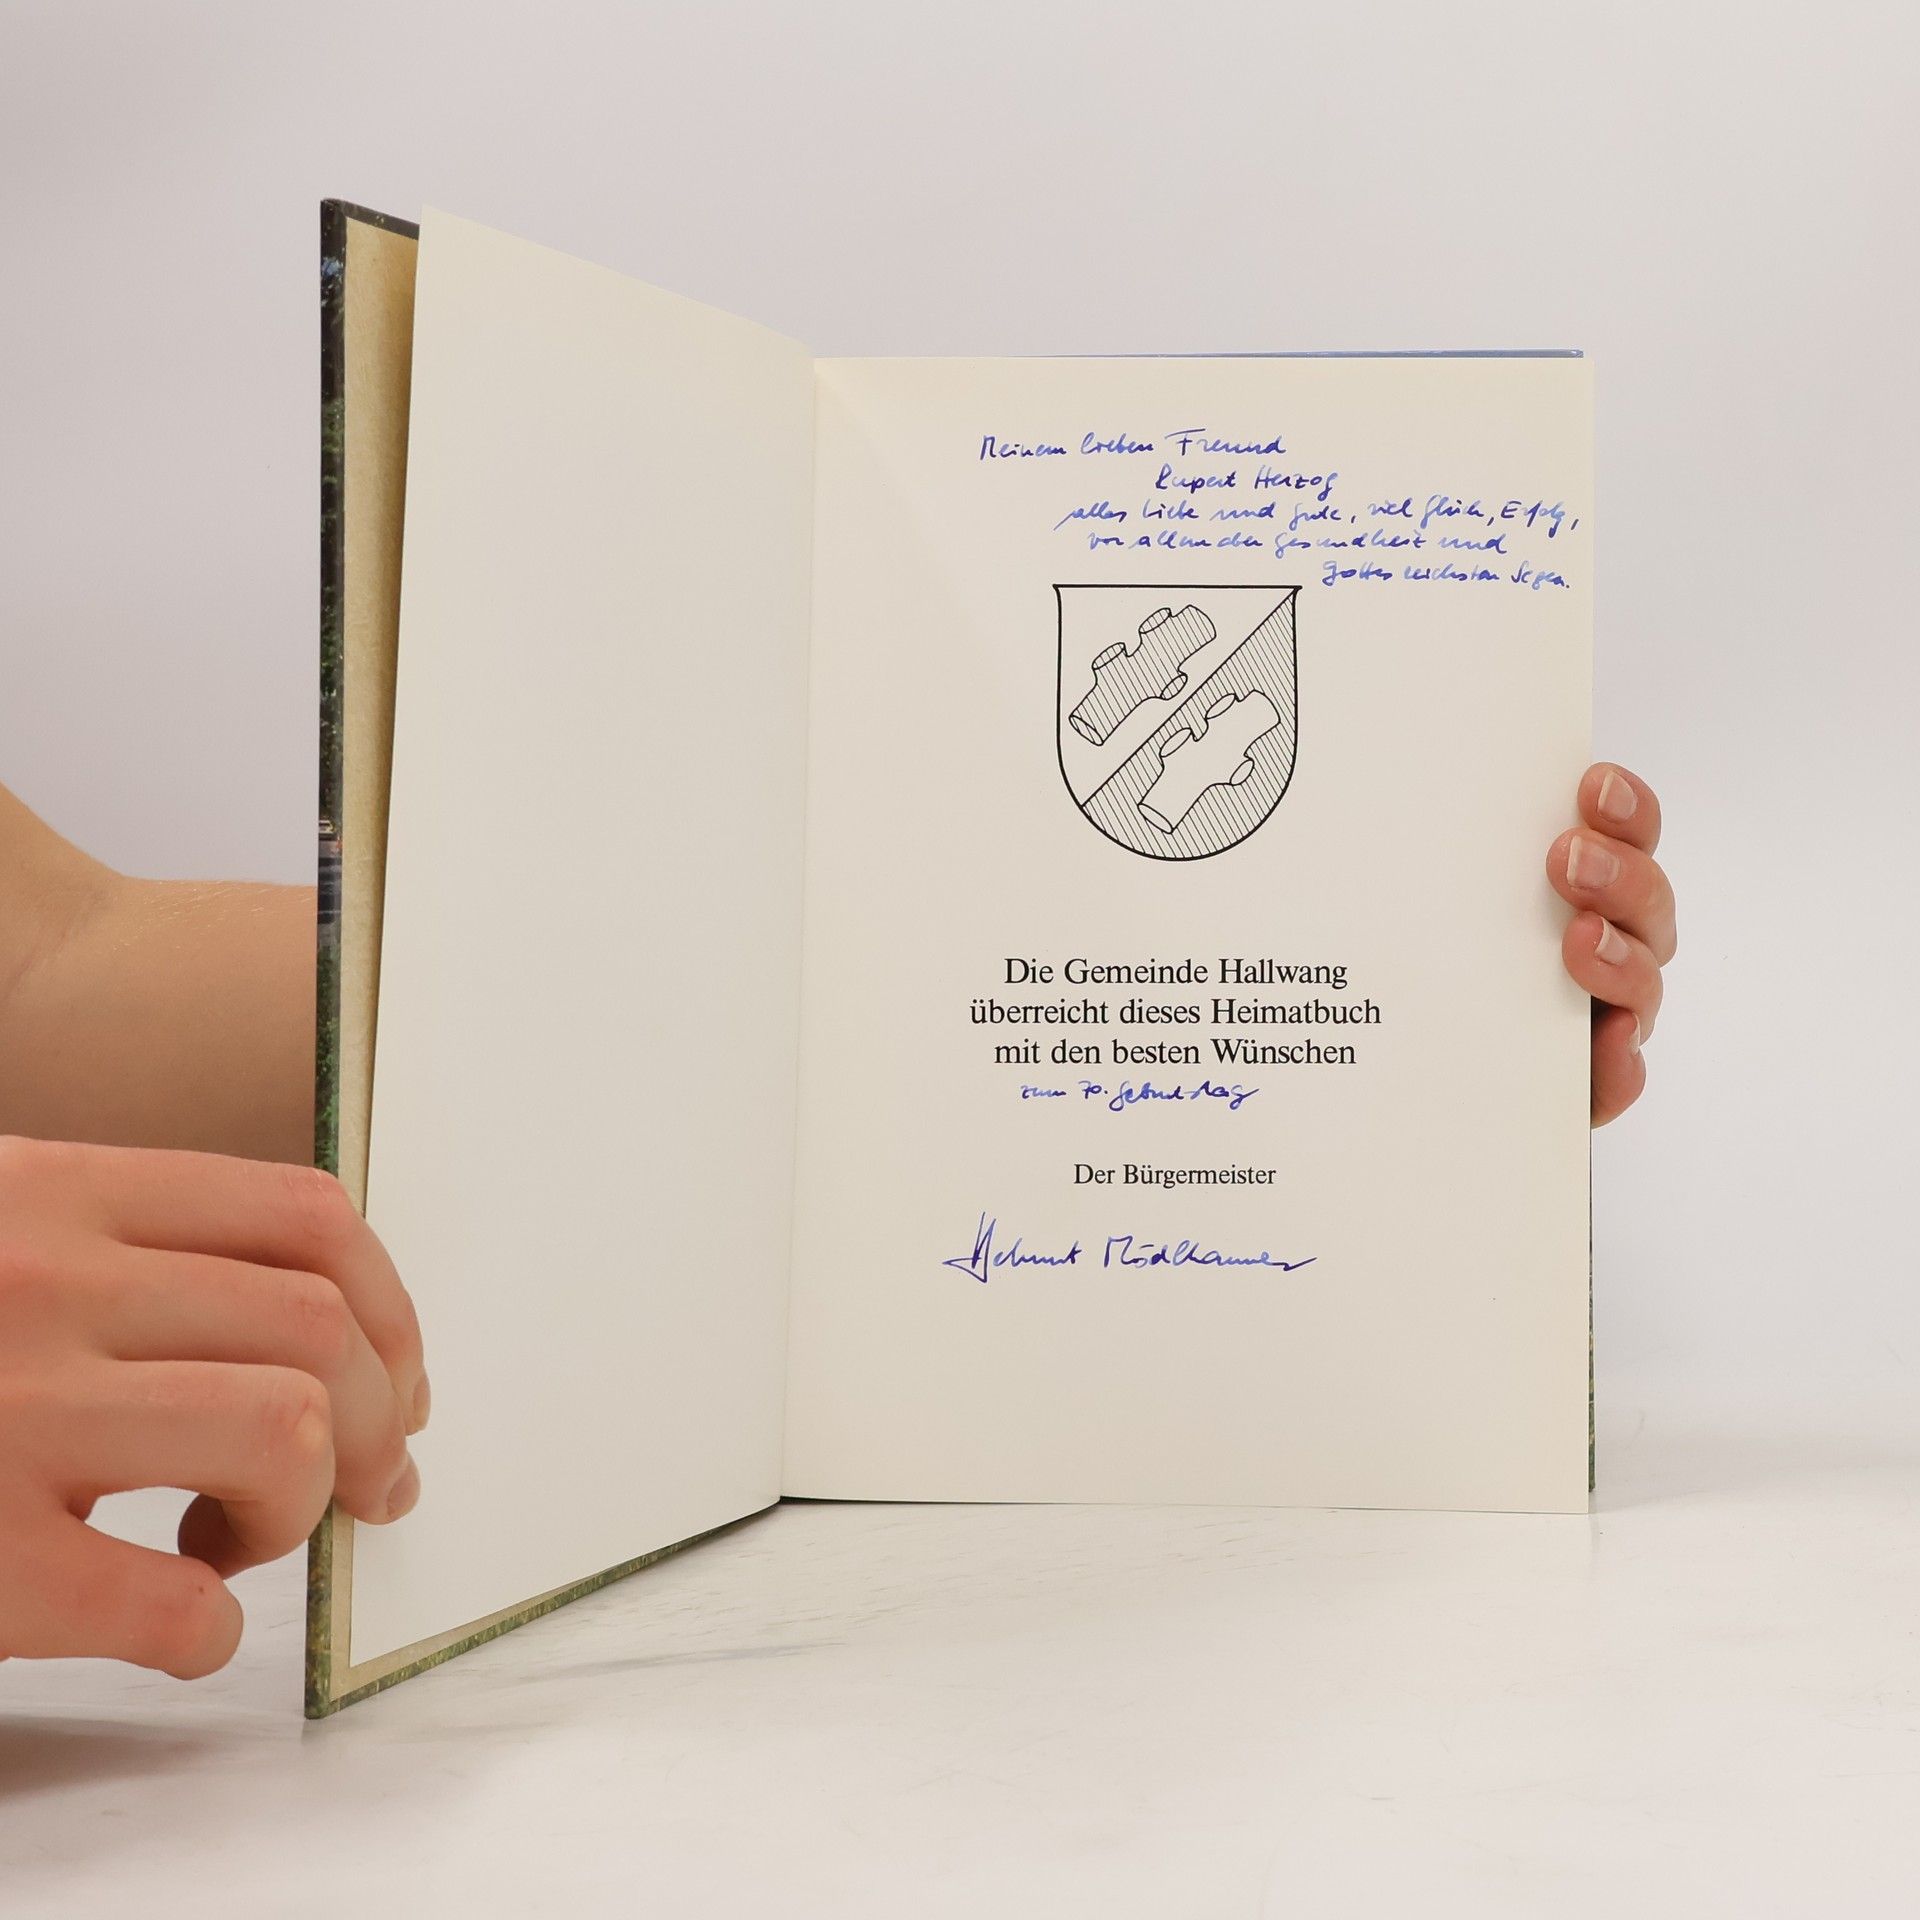 Meinem lieben Freund
Rupert Herzog
alles Liebe und gute, viel Glück, Erfolg,
vor allem aber gesundheit und
Gottes reichsten Segen.
Die Gemeinde Hallwang
überreicht dieses Heimatbuch
mit den besten Wünschen
zum 70. Geburtstag
Der Bürgermeister
Helmut Mödlhammer